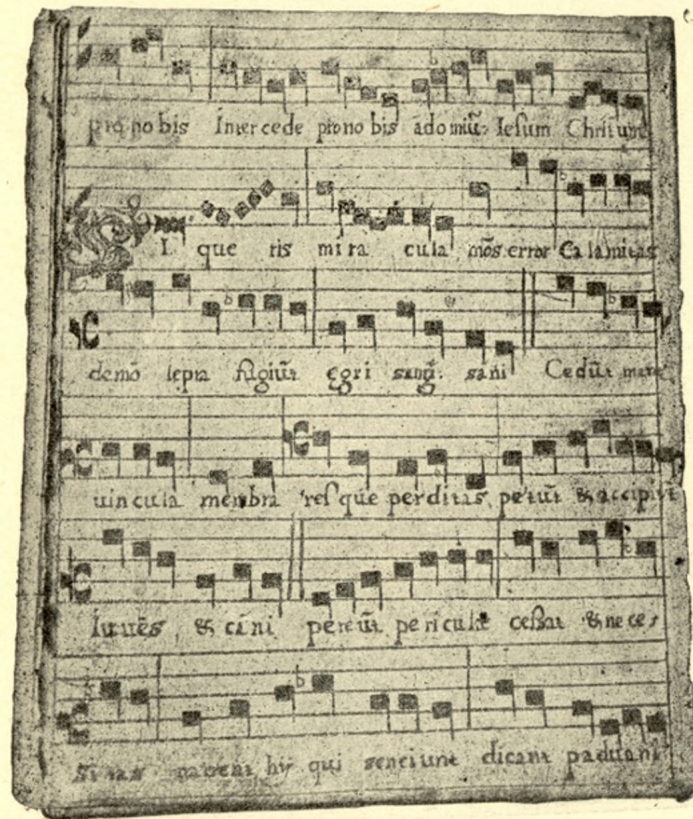 pro no bis Intercede pro no bis ad o miñ: Iesum Christum
SI que ris mi ra cula mõs error Ca la mitas
demõ lepra fugiũt egri sanĝ: sani Cedũt mare
uin cula menbra resque perditas, petũt & accipiũt
Iuuẽs & cá ni pereũt pericula cessat & ne ces
narrent hij qui senciunt dicant paduani